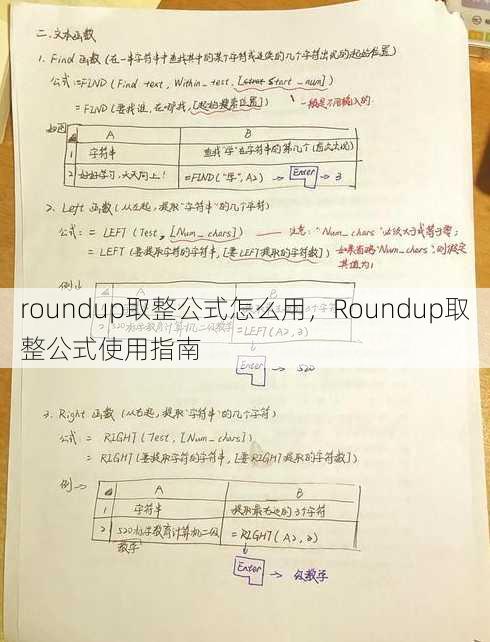 二、文本函数
1. Find 函数(在一串字符串中查找其中的某个字符或连续的几个字符出现的起始位置)
公式:=FIND(Find text, Within_text, [Start_num])
=FIND(要找谁,在哪找,[起始搜索位置]) 一般是不用输入的.
如图
A B
1 字符串 查找"学"在字符串的第几个(首次出现)
2 好好学习,天天向上! =FIND("学",A2) → Enter → 3
2. Left 函数(从左起,提取"字符串"的几个字符)
公式: = LEFT(Test, [Num_chars]) 注意:"Num_chars"必须大于或等于零;
= LEFT(要提取字符的字符串,[要LEFT提取的字符数]) 如果省略"Num_chars",则假定其值为1
例
roundup取整公式怎么用，Roundup取
整公式使用指南
2 520 教育计算机二级数学 =LEFT(A2,3)
Enter → 520
3. Right 函数(从右起,提取"字符串"的几个字符)
公式: = RIGHT(Test, [Num_chars])
= RIGHT(要提取字符的字符串,[要RIGHT提取的字符数])
例→
A B
1 字符串 提取最右边的3个字符
2 520 教育计算机二级数学 =RIGHT(A2,3)
Enter → 级数学